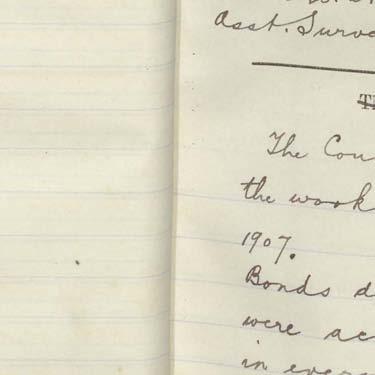 Asst. Surve
The Cou
the work
1907.
Bonds d
were ac
in ever